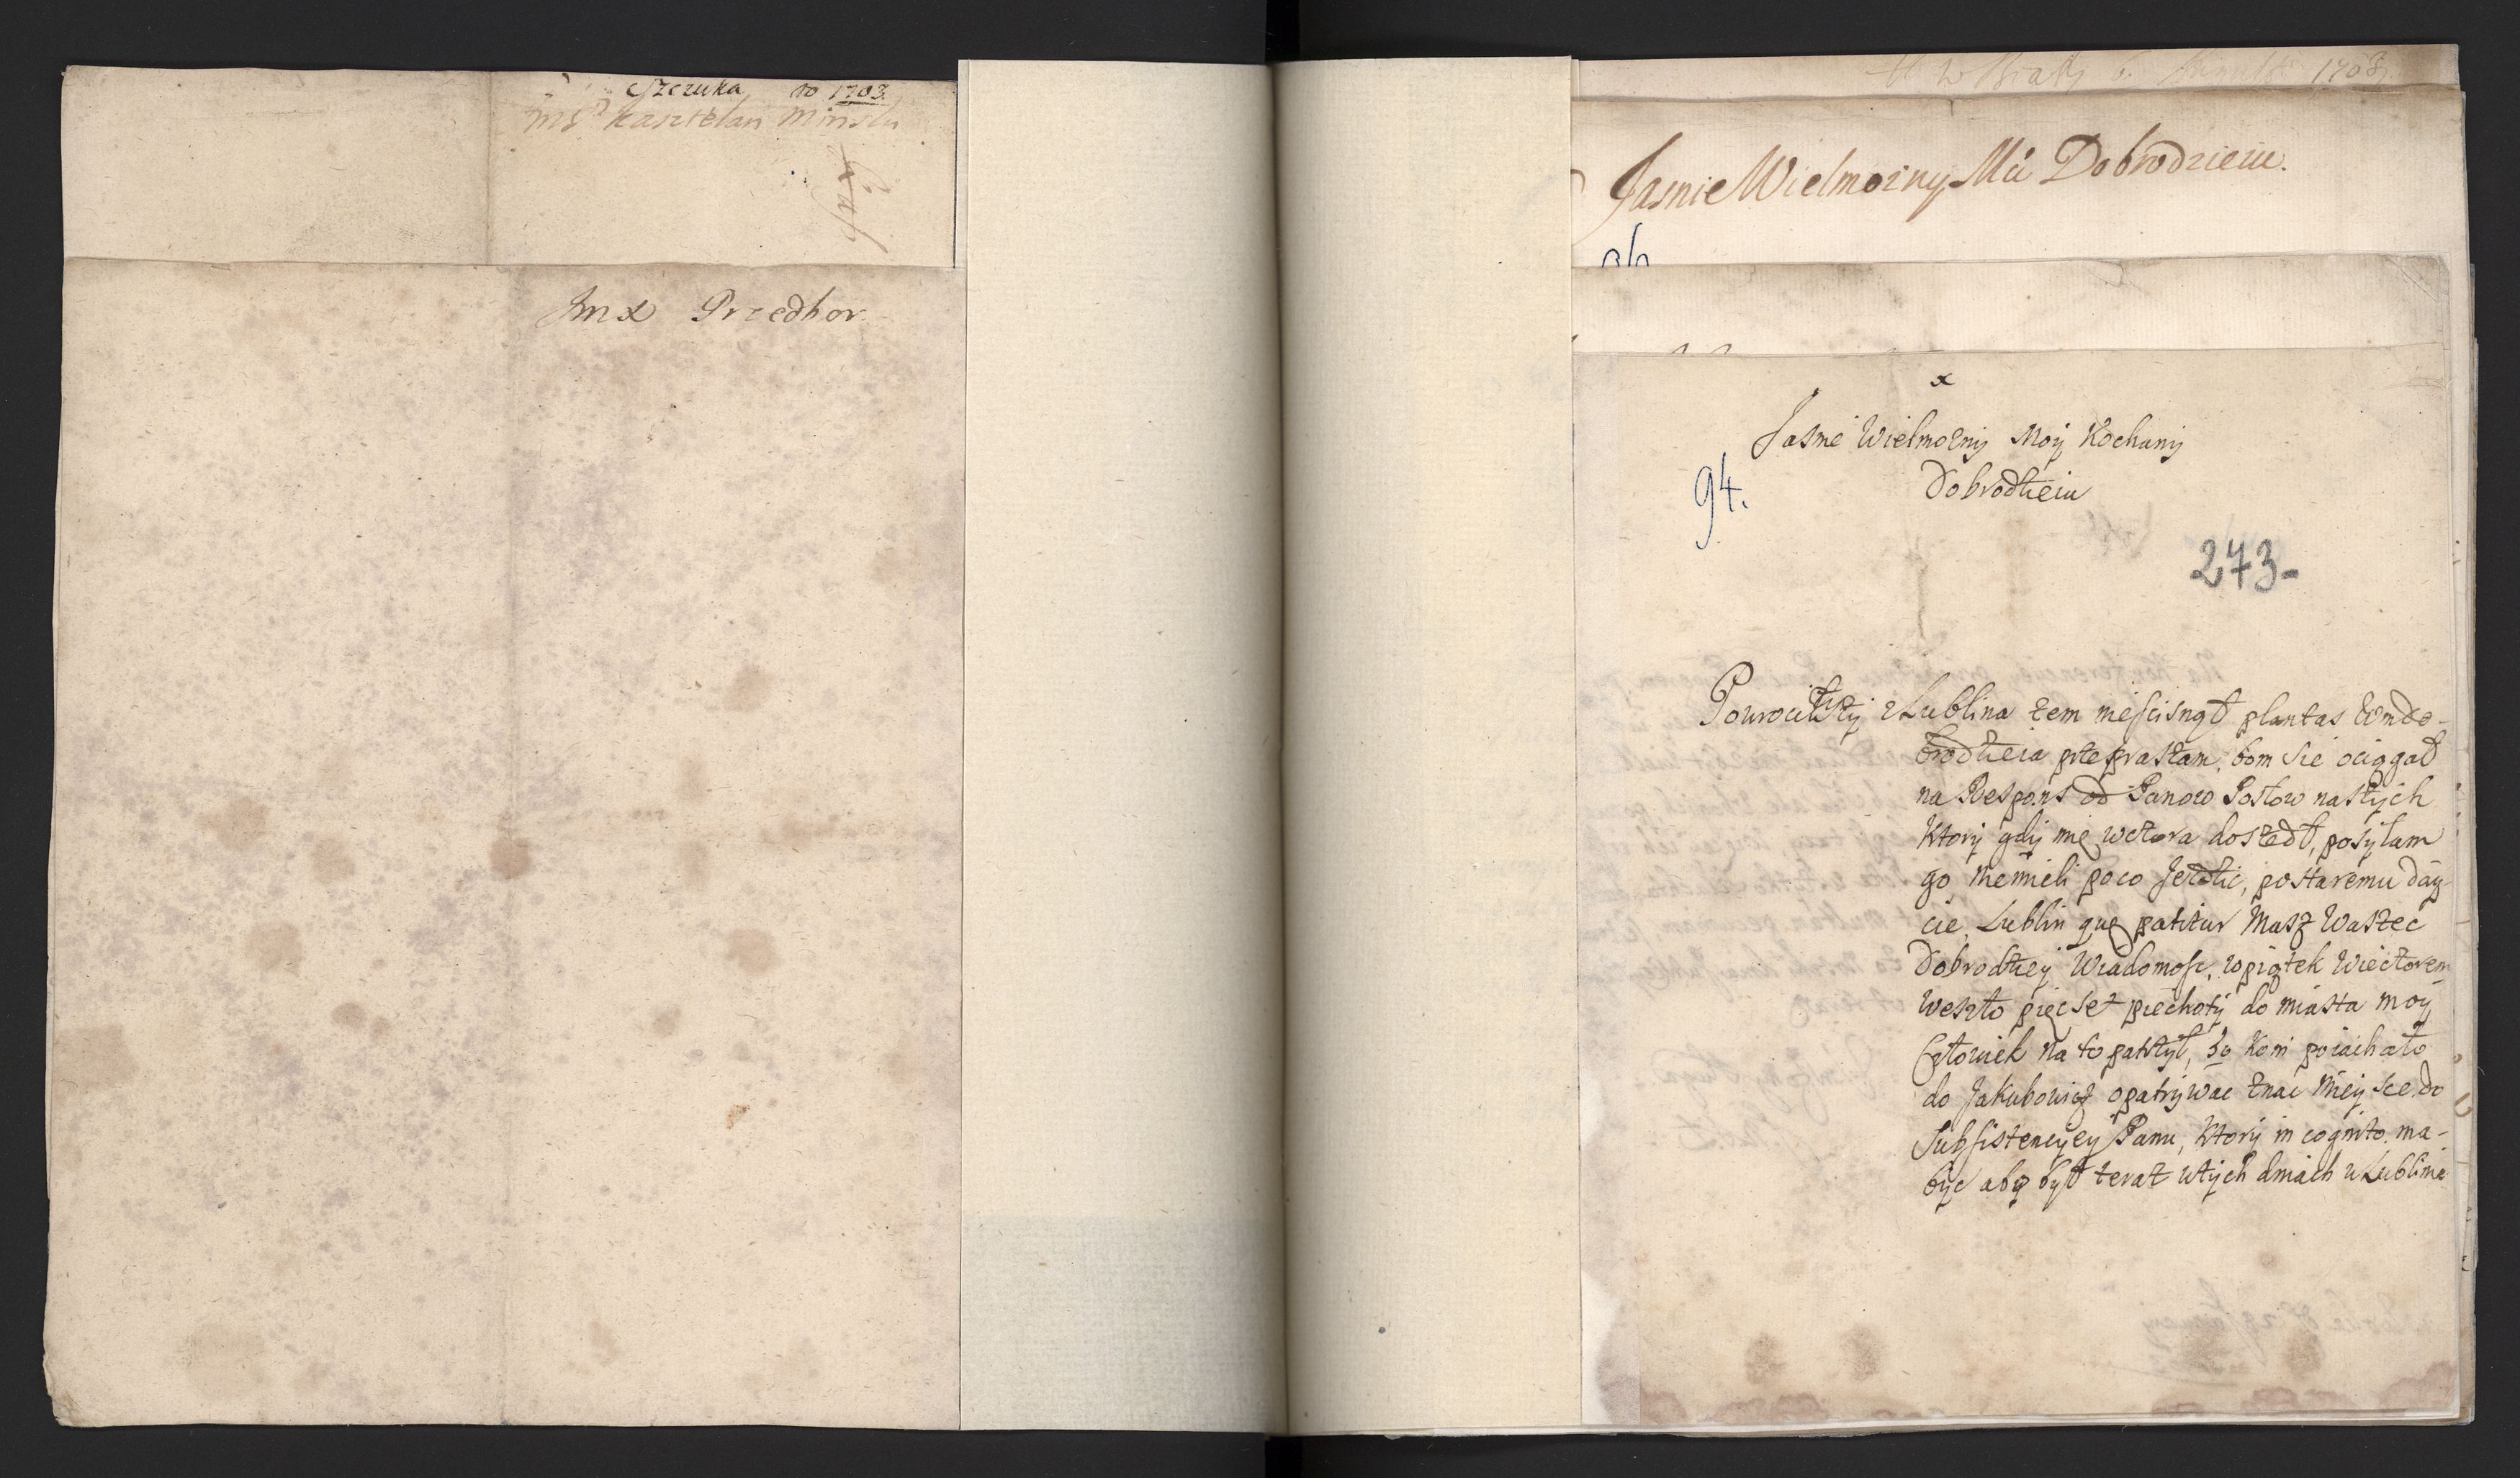 Szczuka 10 1703.
Kasztelan Minski
Jmx Przedbor.
1703.
Jasnie Wielmozny Mći Dobrodzieiu.
36
x
Jasnie Wielmozny Moy Kochany
Dobrodzieiu
94.
273-
Powrociwszy z Lublina zem niescisnął plantas Wmdo-
brodzieia przepraszam, bom sie ociągał
na Respons od Panow Posłow naszych
ktory gdy mię wczora doszedł, posyłam
go niemieli poco Jezdzic, postaremu day-
cie, Lublin quę patitur Masz Waszec
Dobrodziey Wiadomosc, w piątek Wieczorem
Weszło pięcset piechoty do miasta moy
Człowiek na to patrzył, 30 koni poiachało
do Jakubowicz opatrywac znac mieysce do
Subsistencyey Panu, ktory in cognito ma-
byc abo był teraz w tych dniach w Lublinie